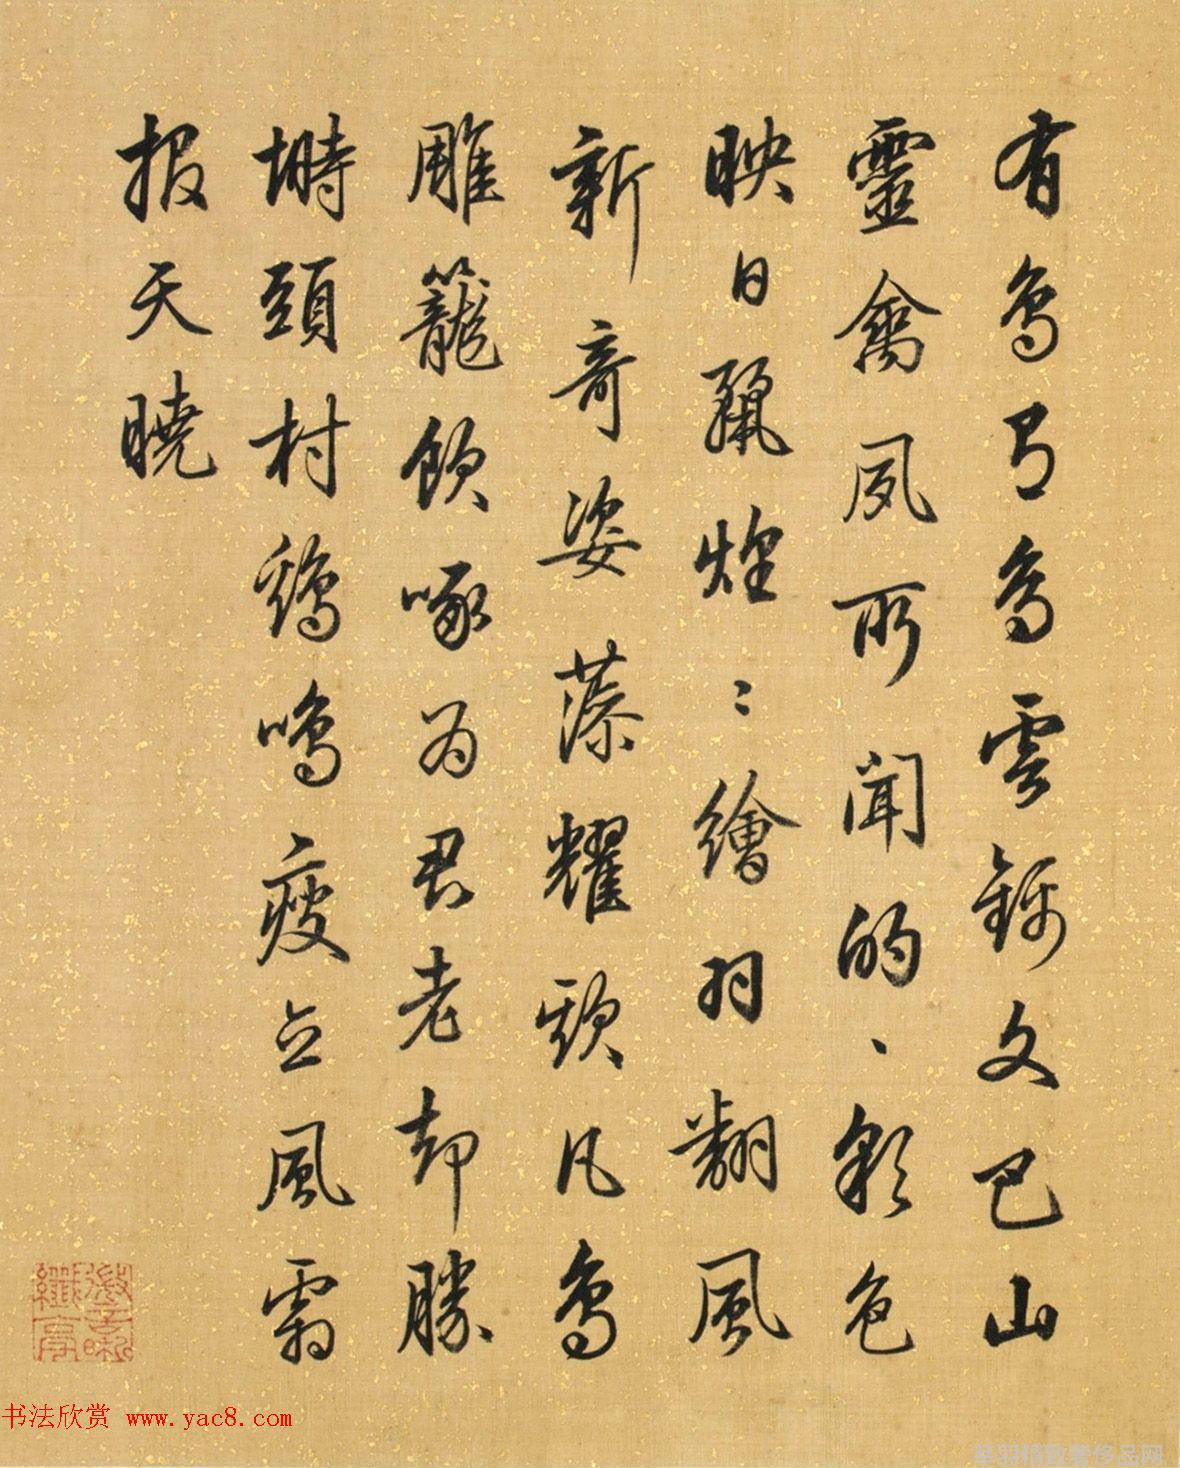 有鳥有鳥雲錦文巴山
靈禽夙所聞的、彩色
映日麗煌〻繪羽翻風
新奇姿葆耀頭凡鳥
雕籠飲啄为君老却勝
塒頭村鷄鳴瘦立風霜
报天曉
书法欣赏 www.yac8.com